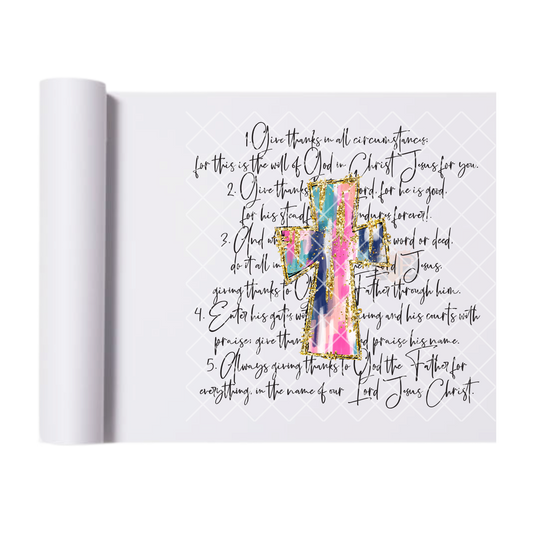 1. Give thanks in all circumstances;
for this is the will of God in Christ Jesus for you.
2. Give thanks ord, for he is good,
for his stead ndures forever!
3. And w word or deed,
do it all in d Jesus,
giving thanks to G Father through him.
4. Enter his gates w ving and his courts with
praise; give than d praise his name.
5. Always giving thanks to God the Father for
everything, in the name of our Lord Jesus Christ.